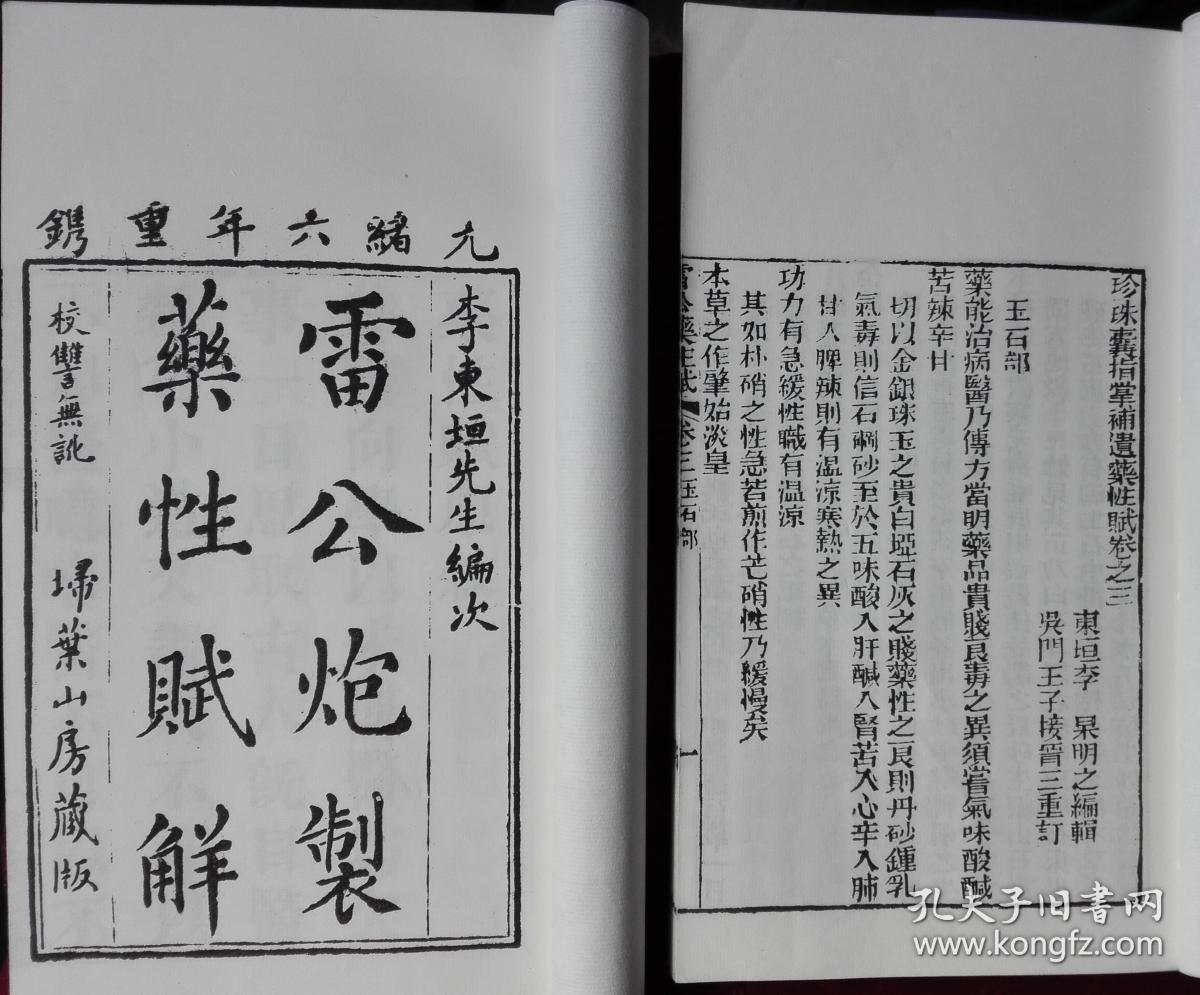 光緒六年重鐫
李東垣先生編次
雷公炮製
藥性賦解
校讐無訛 埽葉山房藏版
珍珠囊指掌補遺藥性賦卷之三
東垣李 杲明之編輯
吳門王子接晉三重訂
玉石部
藥能治病醫乃傳方當明藥品貴賤良毒之異須嘗氣味酸鹹
苦辣辛甘
切以金銀珠玉之貴白堊石灰之賤藥性之良則丹砂鍾乳
氣毒則信石硇砂至於五味酸入肝鹹入腎苦入心辛入肺
甘入脾辣則有溫涼寒熱之異
功力有急緩性職有溫涼
其如朴硝之性急若煎作芒硝性乃緩慢矣
本草之作肇始淡皇
雷公藥性賦 卷之三玉石部 一
孔夫子旧书网
www.kongfz.com